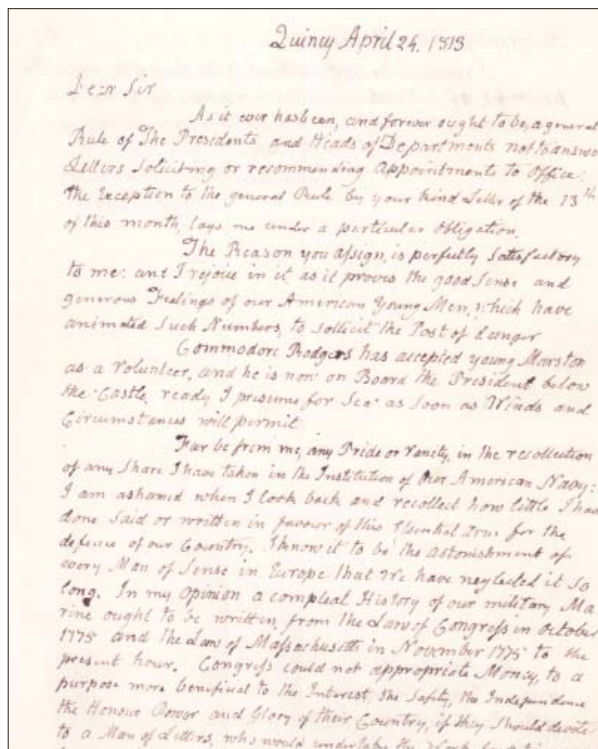 Quincy April 24. 1813
Dear Sir
As it ever has been, and forever ought to be, a general
Rule of The Presidents and Heads of Departments not to answe
Letters Soliciting or recommending Appointments to Office:
the Exception to the general Rule by your kind Letter of the 13th
of this month, lays me under a particular Obligation.
The Reason you assign, is perfectly Satisfactory
to me: and I rejoice in it as it proves the good Sense and
generous Feelings of our American Young Men, which have
animated Such Numbers, to sollicit the Post of danger
Commodore Rodgers has accepted young Marston
as a Volunteer, and he is now on Board the President below
the Castle, ready I presume for Sea as soon as Winds and
Circumstances will permit
Far be from me, any Pride or Vanity, in the recollection
of any Share I have taken in the Institution of Our American Navy:
I am ashamed when I look back and recollect how little I have
done Said or written in favour of this Essential Arm for the
defence of our Country. I know it to be the astonishment of
every Man of Sense in Europe that We have neglected it So
long. In my Opinion a compleat History of our military Ma
rine ought to be written, from the Law of Congress in October
1775 and the Law of Massachusetts in November 1775 to the
present hour. Congress could not appropriate Money, to a
purpose more beneficial to the Interest, the Safety, the Independence
the Honour Power and Glory of their Country, if they should devote
to a Man of Letters, who would undertake the